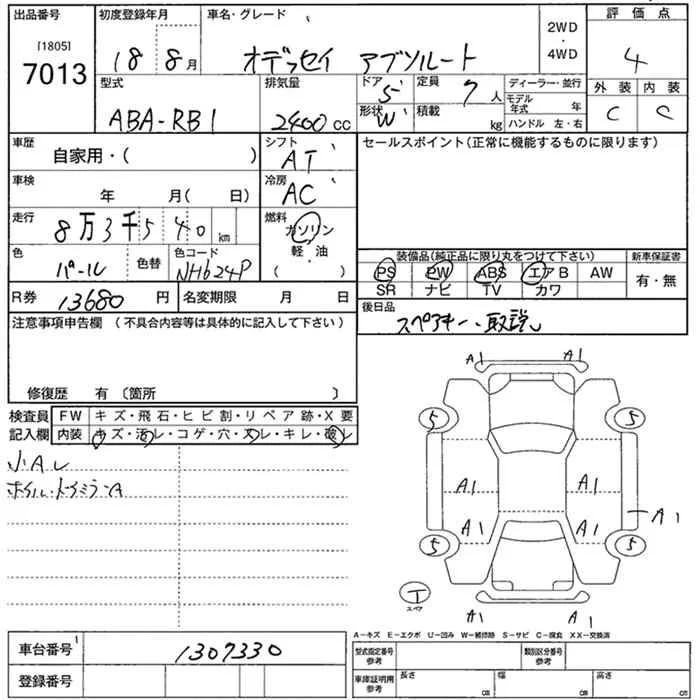 出品番号 初度登録年月 車名・グレード 評価点
[1805] 7013 18 8月 オデッセイ アブソルート 2WD・4WD 4
型式 排気量 ドア 5 定員 7人 ディーラー・並行 外装 内装
ABA-RB1 2400cc 形状 W 積載 kg モデル年式 年 C C
ハンドル 左・右
車歴 シフト セールスポイント(正常に機能するものに限ります)
自家用・( ) AT
車検 冷房
年 月( 日) AC
走行 燃料
8万3千540km ガソリン
軽・油
( )
色 色替 色コード 装備品(純正品に限り丸をつけて下さい) 新車保証書
パール NH624P PS PW ABS エアB AW 有・無
SR ナビ TV カワ
R券 13680円 名変期限 月 日 後日品
スペアキー、取説
注意事項申告欄 (不具合内容等は具体的に記入して下さい)
修復歴 有 〔箇所 〕
検査員 FW キズ・飛石・ヒビ割・リペア跡・X要
記入欄 内装 キズ・汚レ・コゲ・穴・スレ・キレ・破レ
小Aし
ホイル・ドアミラーA
A1 A1
5 5
A1 A1
A1 A1 A1
5 5
T
スペア
A1 A1
A−キズ E−エクボ U−凹み W−補修跡 S−サビ C−腐食 XX−交換済
車台番号 1 1307330 型式指定番号 参考 類別区分番号 参考
登録番号 車庫証明用 参考 長さ cm 幅 cm 高さ cm